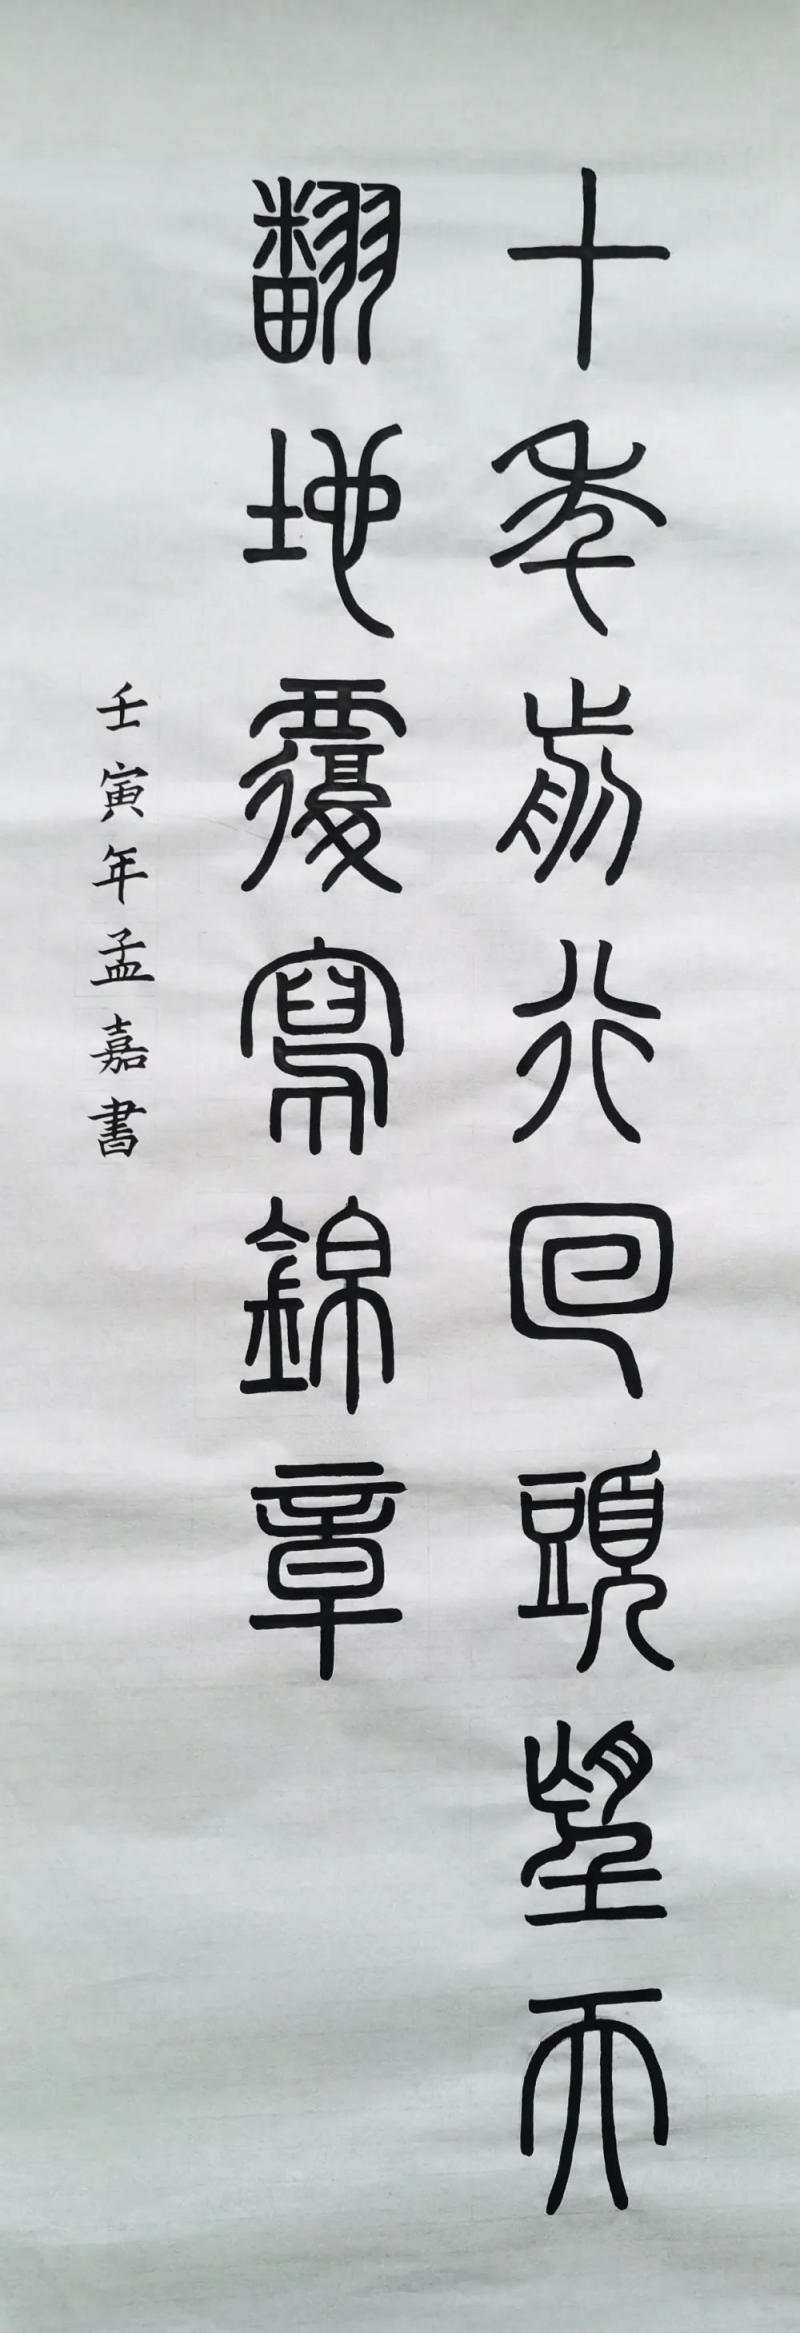 十年前行回頭望天
翻地覆寫錦章
壬寅年孟嘉書